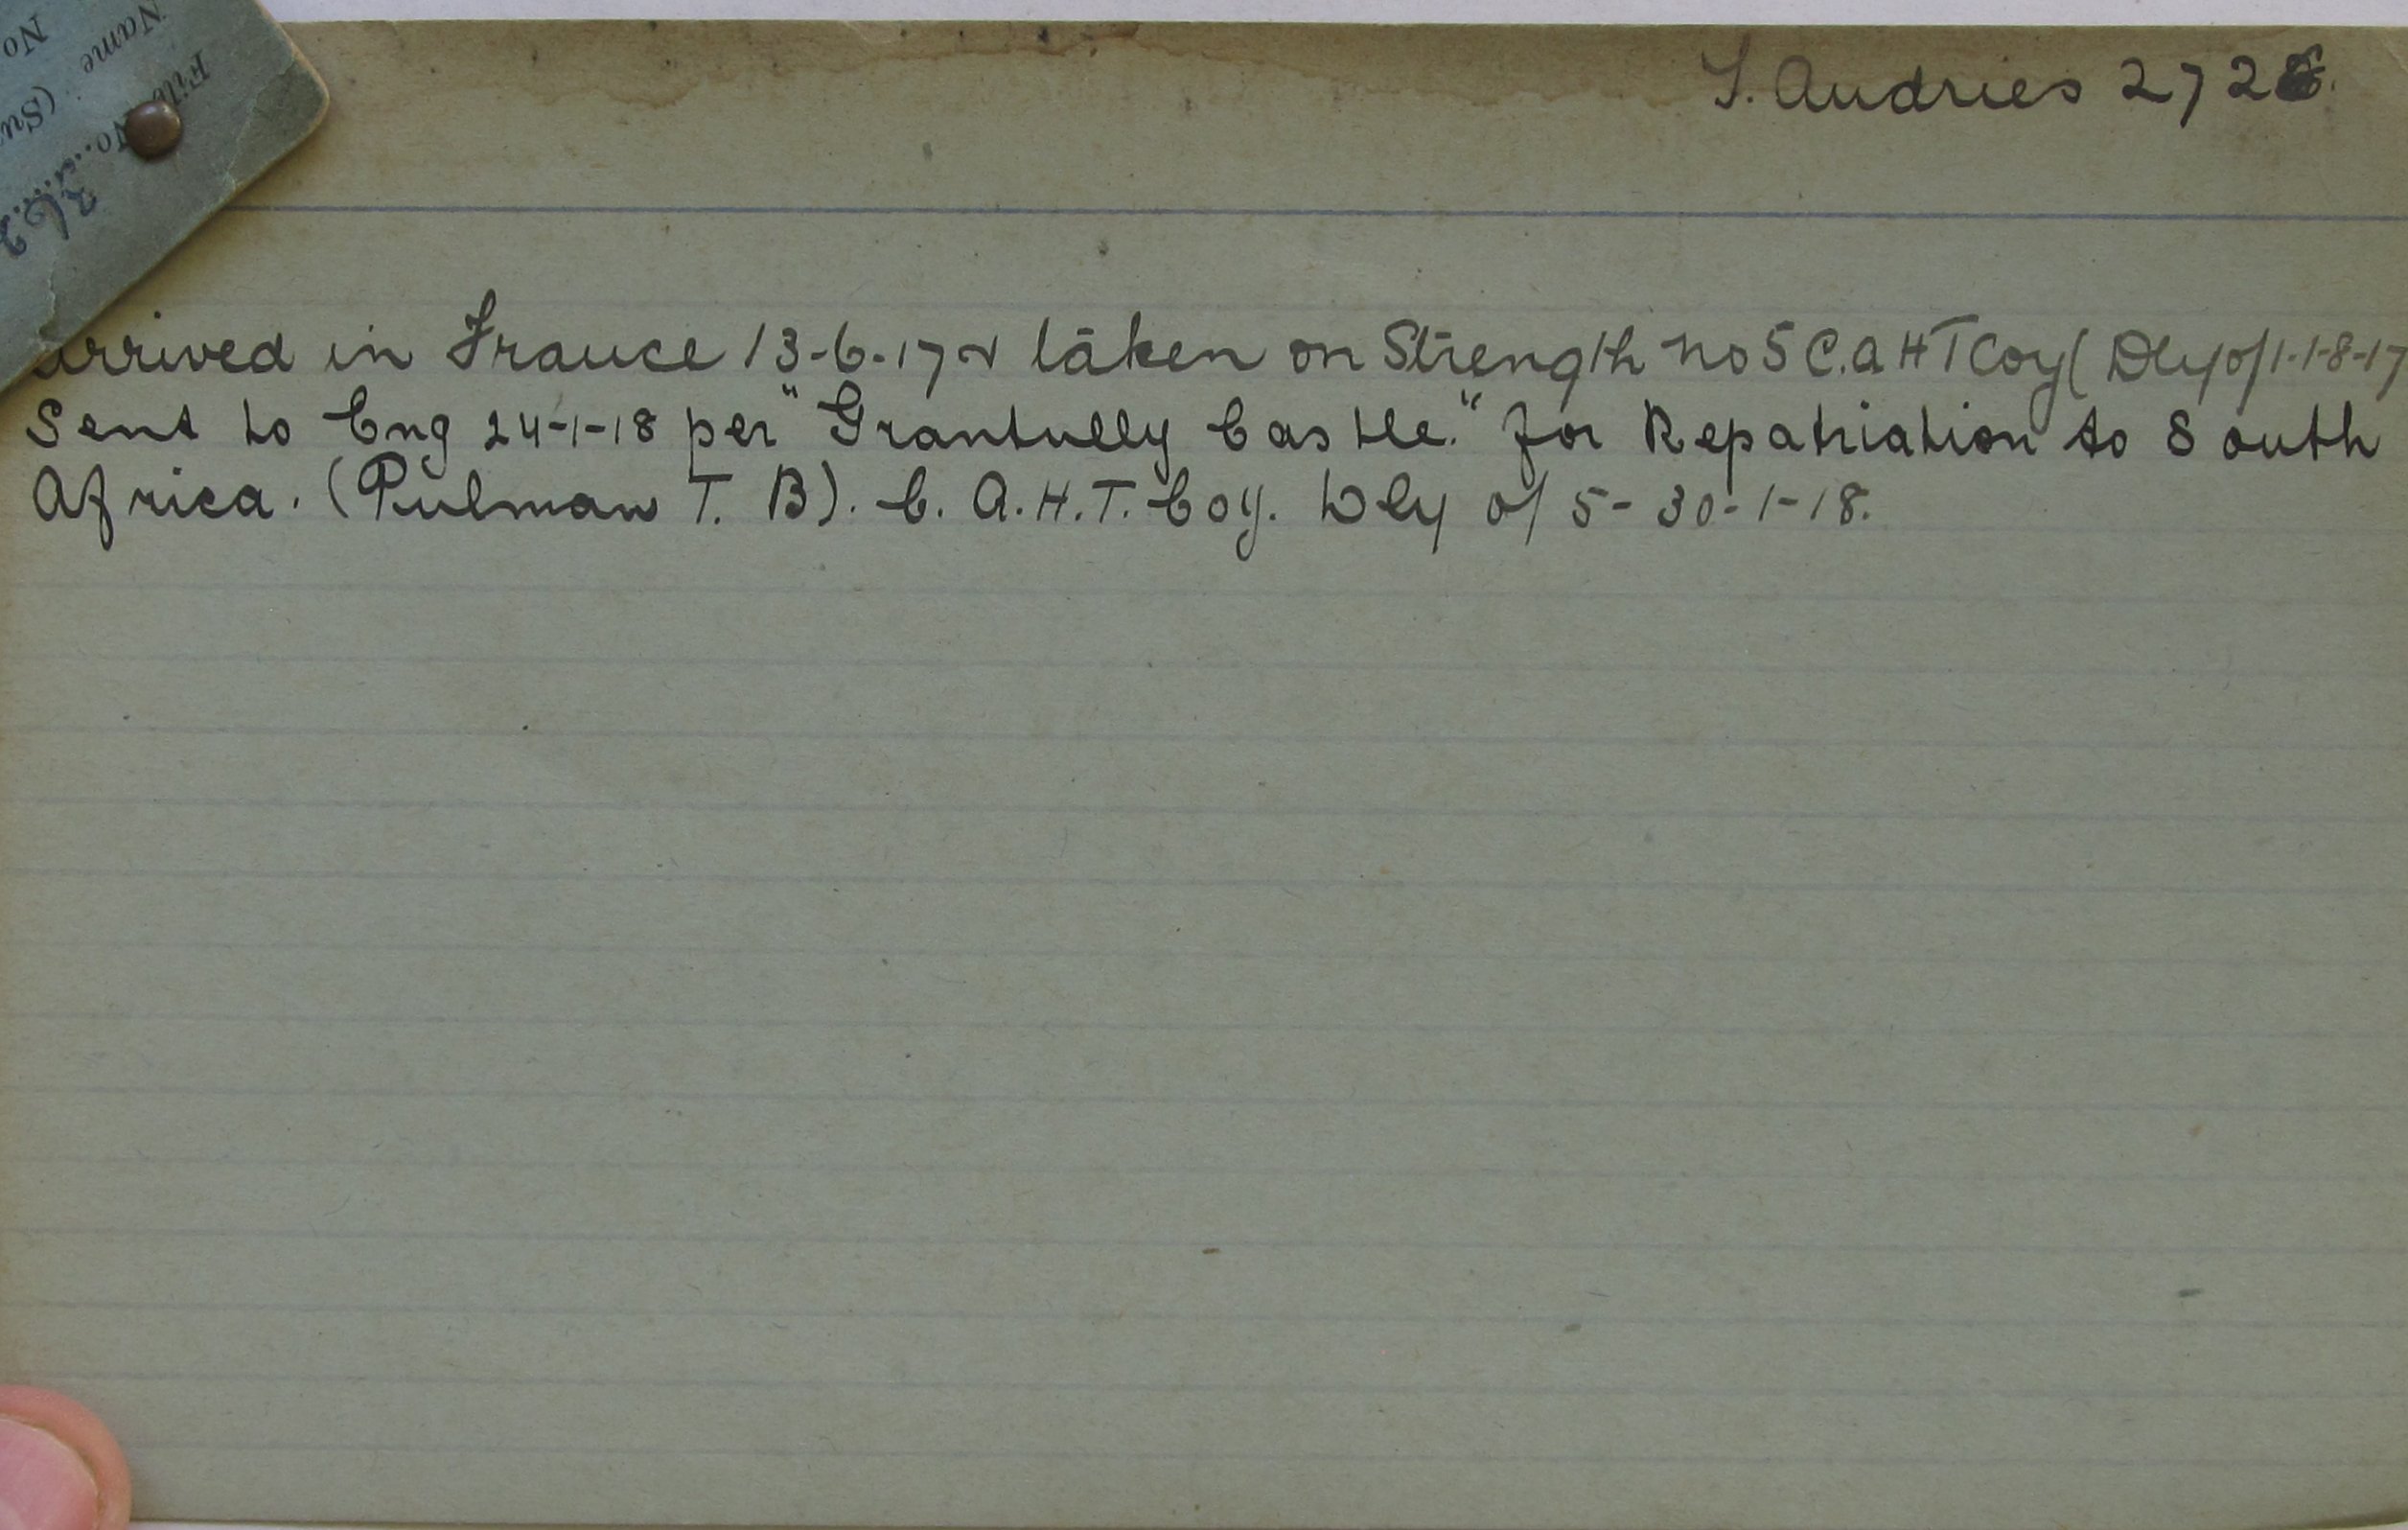 No
Name (Su
File No.....
J. Andries 272
arrived in France 13-6-17 & taken on Strength No 5 C.A H T Coy ( Dly o/ 1-1-8-17
Sent to Eng 24-1-18 per "Grantully Castle." for Repatriation to South
Africa. (Pulman T. B). C. A.H.T. Coy. Dly o/ 5- 30-1-18.